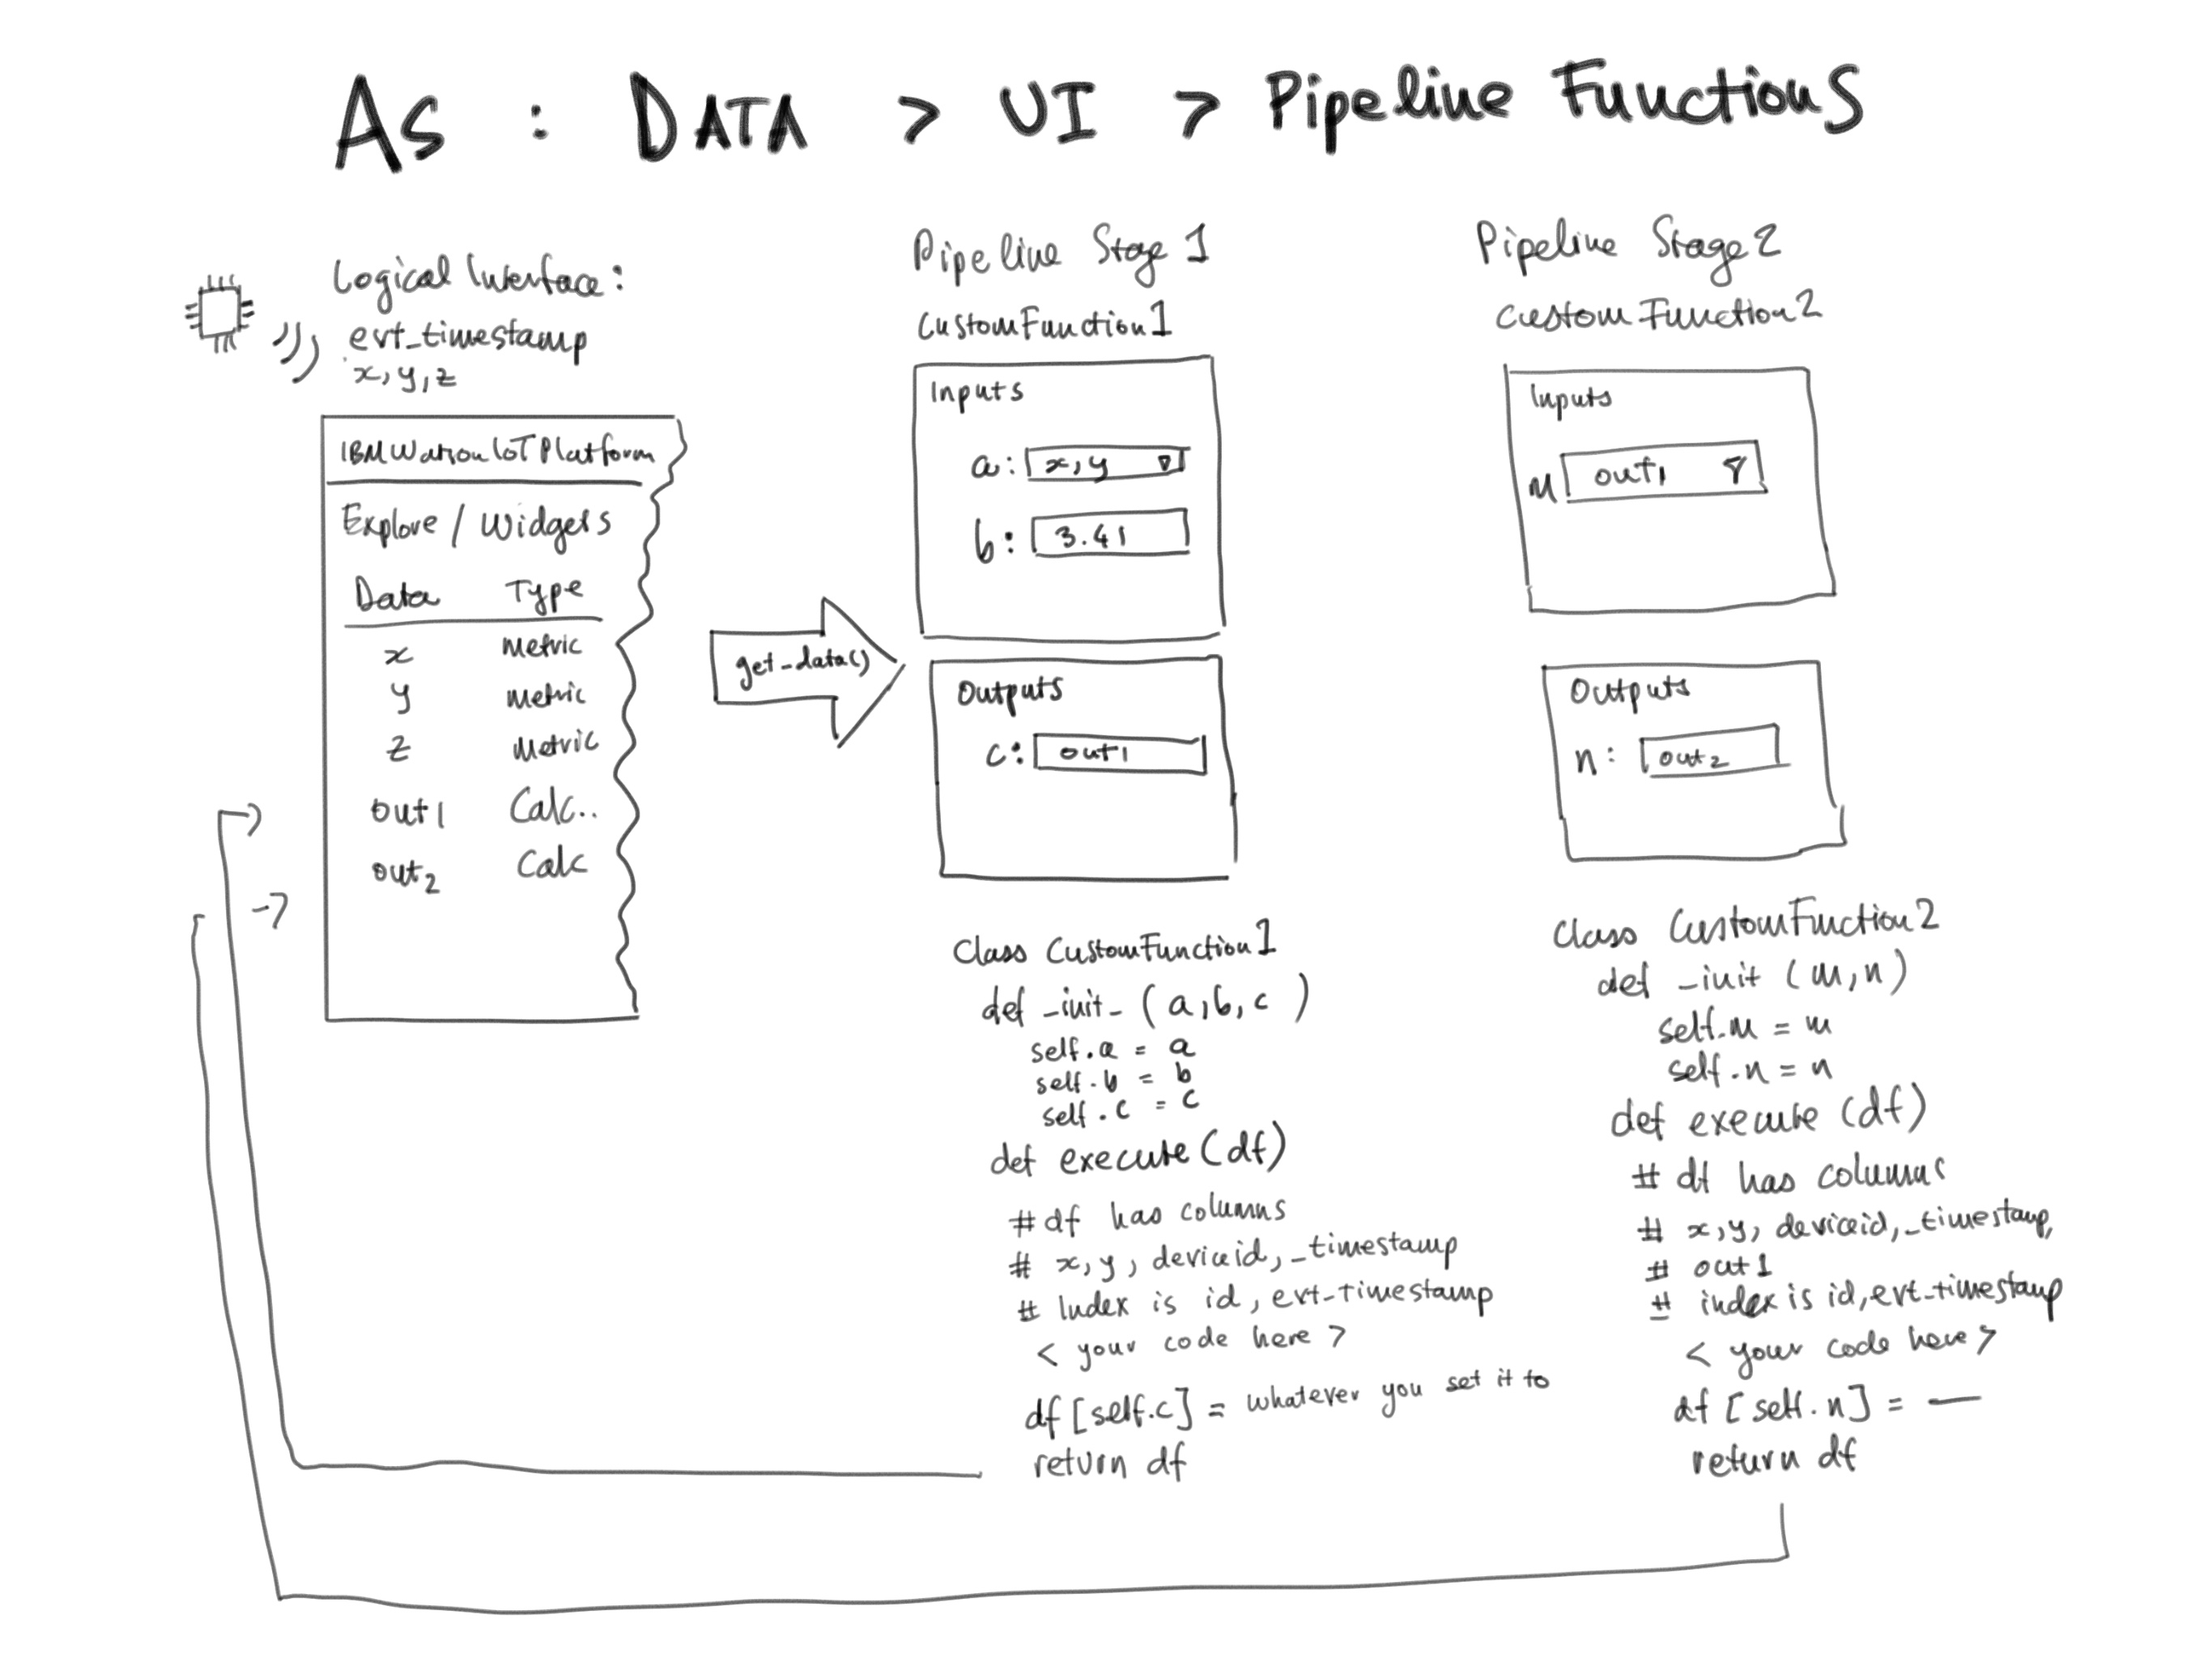 As : DATA > UI > Pipeline Functions
Logical Interface:
evt_timestamp
x, y, z
IBM Watson IoT Platform
Explore / Widgets
Data Type
x Metric
y Metric
z Metric
out1 Calc..
out2 Calc
get_data()
Pipeline Stage 1
CustomFunction1
Inputs
a: x, y
b: 3.41
Outputs
c: out1
Class CustomFunction1
def _init_ (a, b, c )
self.a = a
self.b = b
self.c = c
def execute (df)
# df has columns
# x, y, deviceid, _timestamp
# Index is id, evt_timestamp
< your code here >
df [self.c] = whatever you set it to
return df
Pipeline Stage 2
Custom Function2
Inputs
M out1
Outputs
n: out2
Class CustomFunction2
def _init (m, n)
self.m = m
self.n = n
def execute (df)
# df has columns
# x, y, deviceid, _timestamp,
# out1
# index is id, evt_timestamp
< your code here >
df [self.n] = —
return df